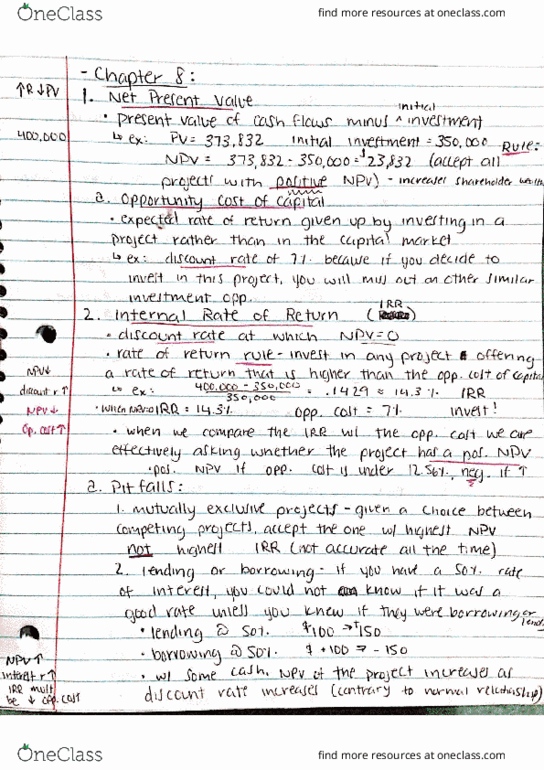 OneClass
find more resources at oneclass.com
- Chapter 8:
↑R ↓PV
1. Net Present Value
initial
• present value of cash flows minus ^ investment
400,000
↳ ex: PV = 373,832 initial investment = 350,000 Rule:
NPV = 373,832 - 350,000 = $23,832 (accept all
projects with positive NPV) - increases shareholder wealth
a. Opportunity cost of capital
• expected rate of return given up by investing in a
project rather than in the capital market
↳ ex: discount rate of 7% because if you decide to
invest in this project, you will miss out on other similar
investment opp.
2. Internal Rate of Return (IRR)
• discount rate at which NPV=0
• rate of return rule - invest in any project offering
a rate of return that is higher than the opp. cost of capital
NPV↓
discount r ↑
↳ ex: 400,000 - 350,000 / 350,000 = .1429 = 14.3% IRR
NPV↓
Op. cost ↑
• When NPV=0 IRR = 14.3% opp. cost = 7% invest!
• when we compare the IRR w/ the opp. cost we are
effectively asking whether the project has a pos. NPV
• pos. NPV if opp. cost is under 12.56%, neg. if ↑
a. Pitfalls:
1. mutually exclusive projects - given a choice between
competing projects, accept the one w/ highest NPV
not highest IRR (not accurate all the time)
2. lending or borrowing - if you have a 50% rate
of interest, you could not know if it was a
good rate unless you knew if they were borrowing or
lend.
• lending @ 50% $100 → $150
• borrowing @ 50% $ +100 → -150
NPV ↑
interest r ↑
IRR must
be ↓ opp. cost
• w/ some cash, NPV of the project increases as
discount rate increases (contrary to normal relationship)
OneClass
find more resources at oneclass.com